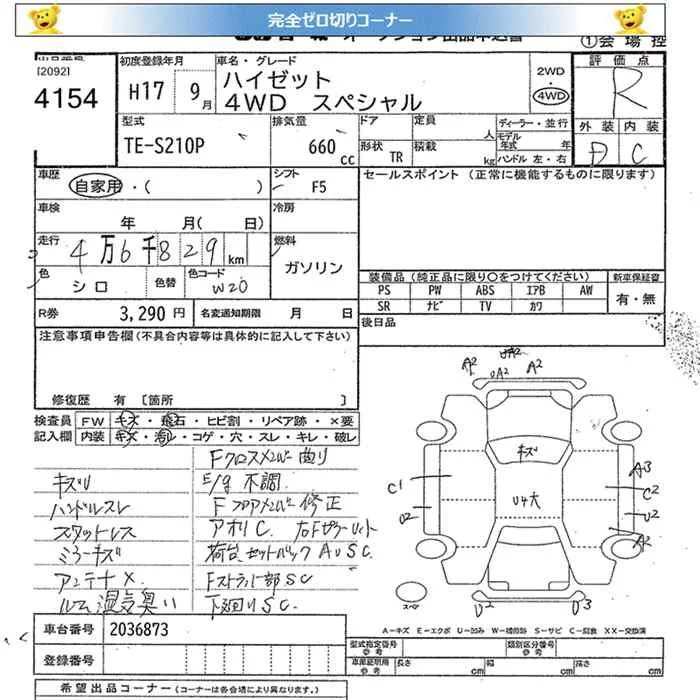 完全ゼロ切りコーナー
①会場控
[2092]
4154
初度登録年月
H17 9月
車名・グレード
ハイゼット
4WD スペシャル
2WD
4WD
評価点
R
型式
TE-S210P
排気量
660 cc
ドア
形状
TR
定員 人
積載 kg
ディーラー・並行
モデル年式 年
ハンドル 左・右
外装 内装
D C
車歴
自家用・( )
シフト
F5
セールスポイント (正常に機能するものに限ります)
車検
年 月( 日)
冷房
走行
4万6千829km
燃料
ガソリン
色
シロ
色替
色コード
W20
装備品(純正品に限り○をつけてください)
新車保証書
PS PW ABS エアB AW
SR ナビ TV カワ
有・無
R券 3,290円
名変通知期限 月 日
後日品
注意事項申告欄(不具合内容等は具体的に記入して下さい)
修復歴 有 [箇所 ]
検査員記入欄
FW キズ・飛石・ヒビ割・リペア跡・×要
内装 キズ・汚レ・コゲ・穴・スレ・キレ・破レ
キズU
ハンドルスレ
スタットレス
ミラーキズ
アンテナ×
ルーム湿気臭い
Fクロスメンバー曲り
E/g不調
Fフロアメンバー修正
アオリC
荷台、セットバックAUSC
Fストラット部SC
下廻りSC
A2
UA2
A2
キズ
U4大
C1
U2
A3
C2
U2
A2
スペア
U2
U3
A-キズ E-エクボ U-凹み W-補修跡 S-サビ C-腐食 XX-交換済
車台番号 2036873
登録番号
型式指定番号
参考
類別区分番号
参考
車庫証明用
参考
長さ cm
幅 cm
高さ cm
希望出品コーナー(コーナーは各会場により異なります。)